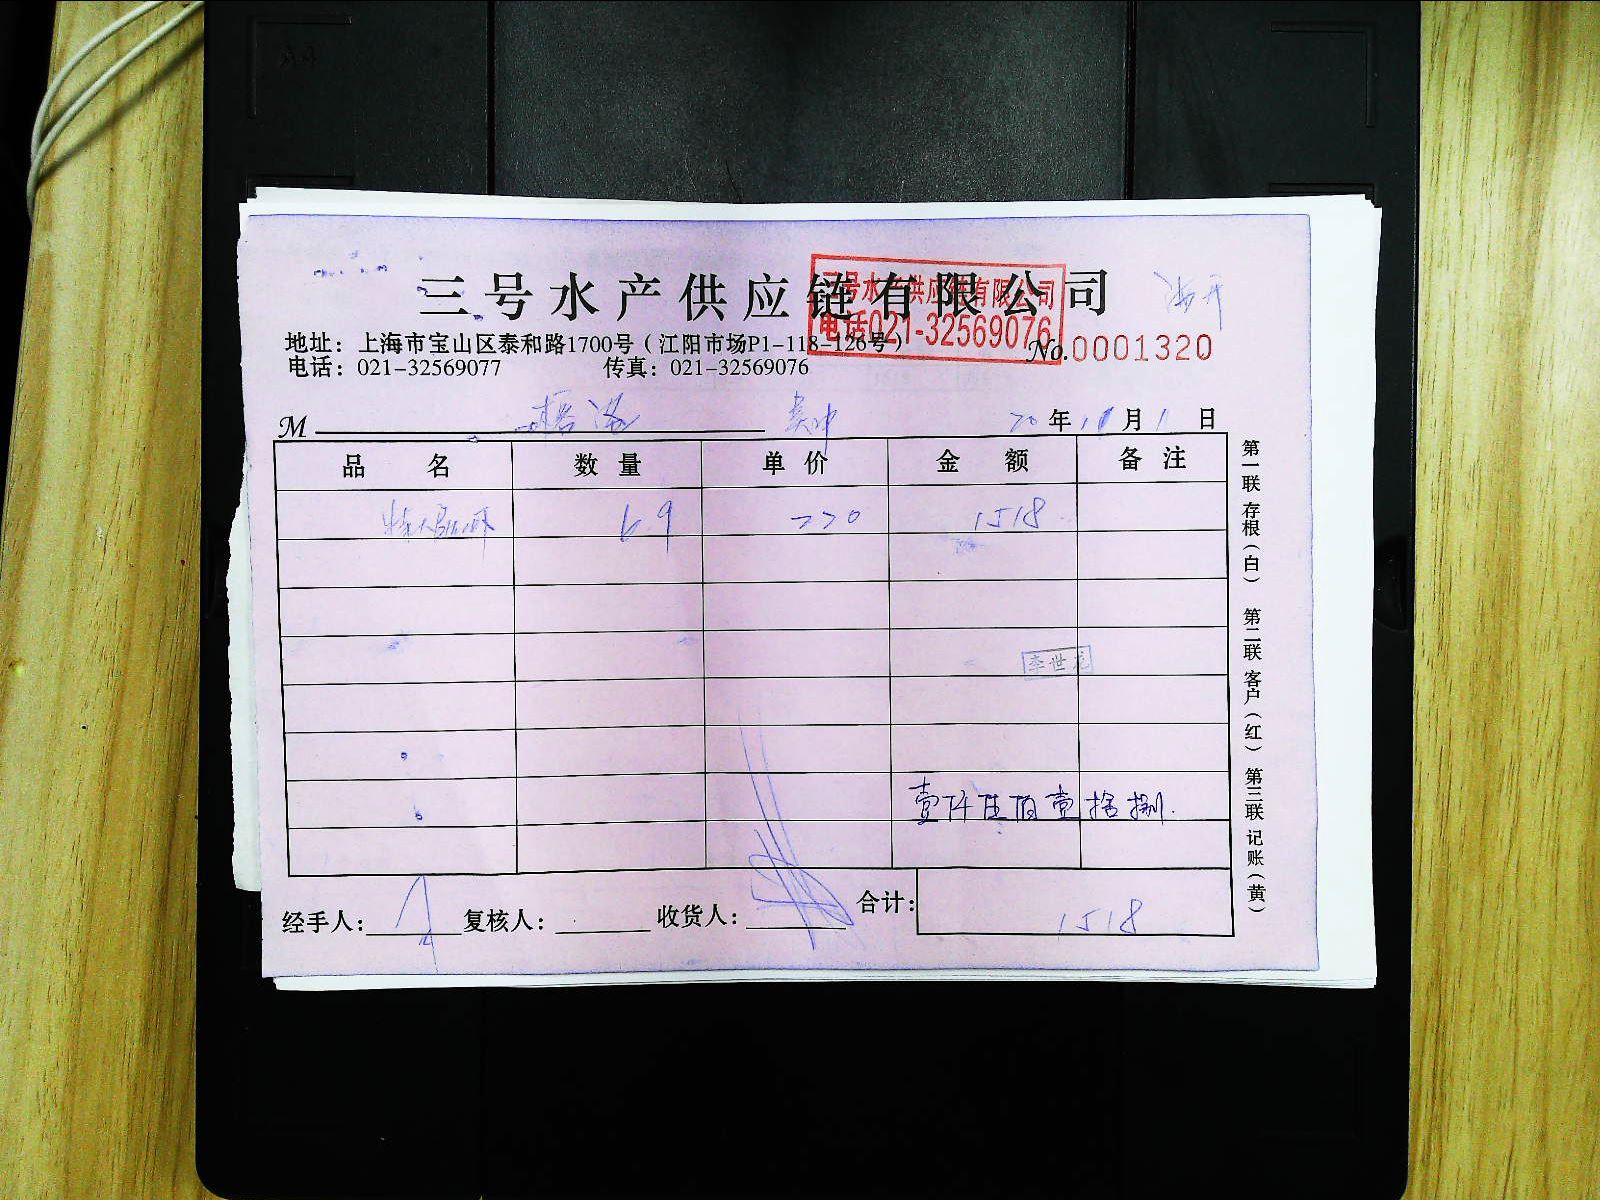 三号水产供应链有限公司
三号水产供应链有限公司
电话021-32569076
地址：上海市宝山区泰和路1700号（江阳市场P1-118-126号）
No.0001320
电话：021-32569077 传真：021-32569076
M 20年 月1日
品名 数量 单价 金额 备注
6.9 220 1518
李世龙
壹仟伍佰壹拾捌.
经手人： 复核人： 收货人： 合计：1518
第一联 存根（白） 第二联 客户（红） 第三联 记账（黄）